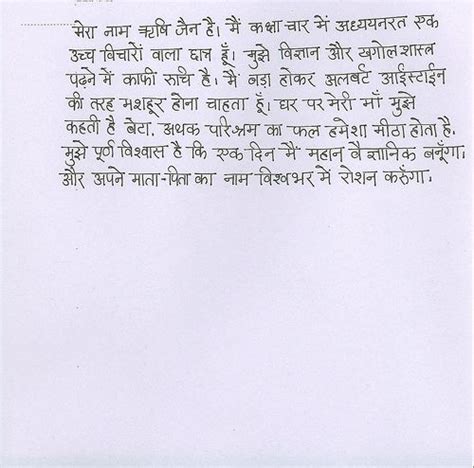 मेरा नाम ऋषि जैन है। मैं कक्षा चार में अध्ययनरत एक
उच्च विचारों वाला छात्र हूँ। मुझे विज्ञान और खगोल शास्त्र
पढ़ने में काफी रुचि है। मैं बड़ा होकर अलबर्ट आईस्टाईन
की तरह मशहूर होना चाहता हूँ। घर पर मेरी माँ मुझे
कहती है बेटा, अथक परिश्रम का फल हमेशा मीठा होता है,
मुझे पूर्ण विश्वास है कि एक दिन मैं महान वैज्ञानिक बनूँगा,
और अपने माता-पिता का नाम विश्वभर में रोशन करुँगा,